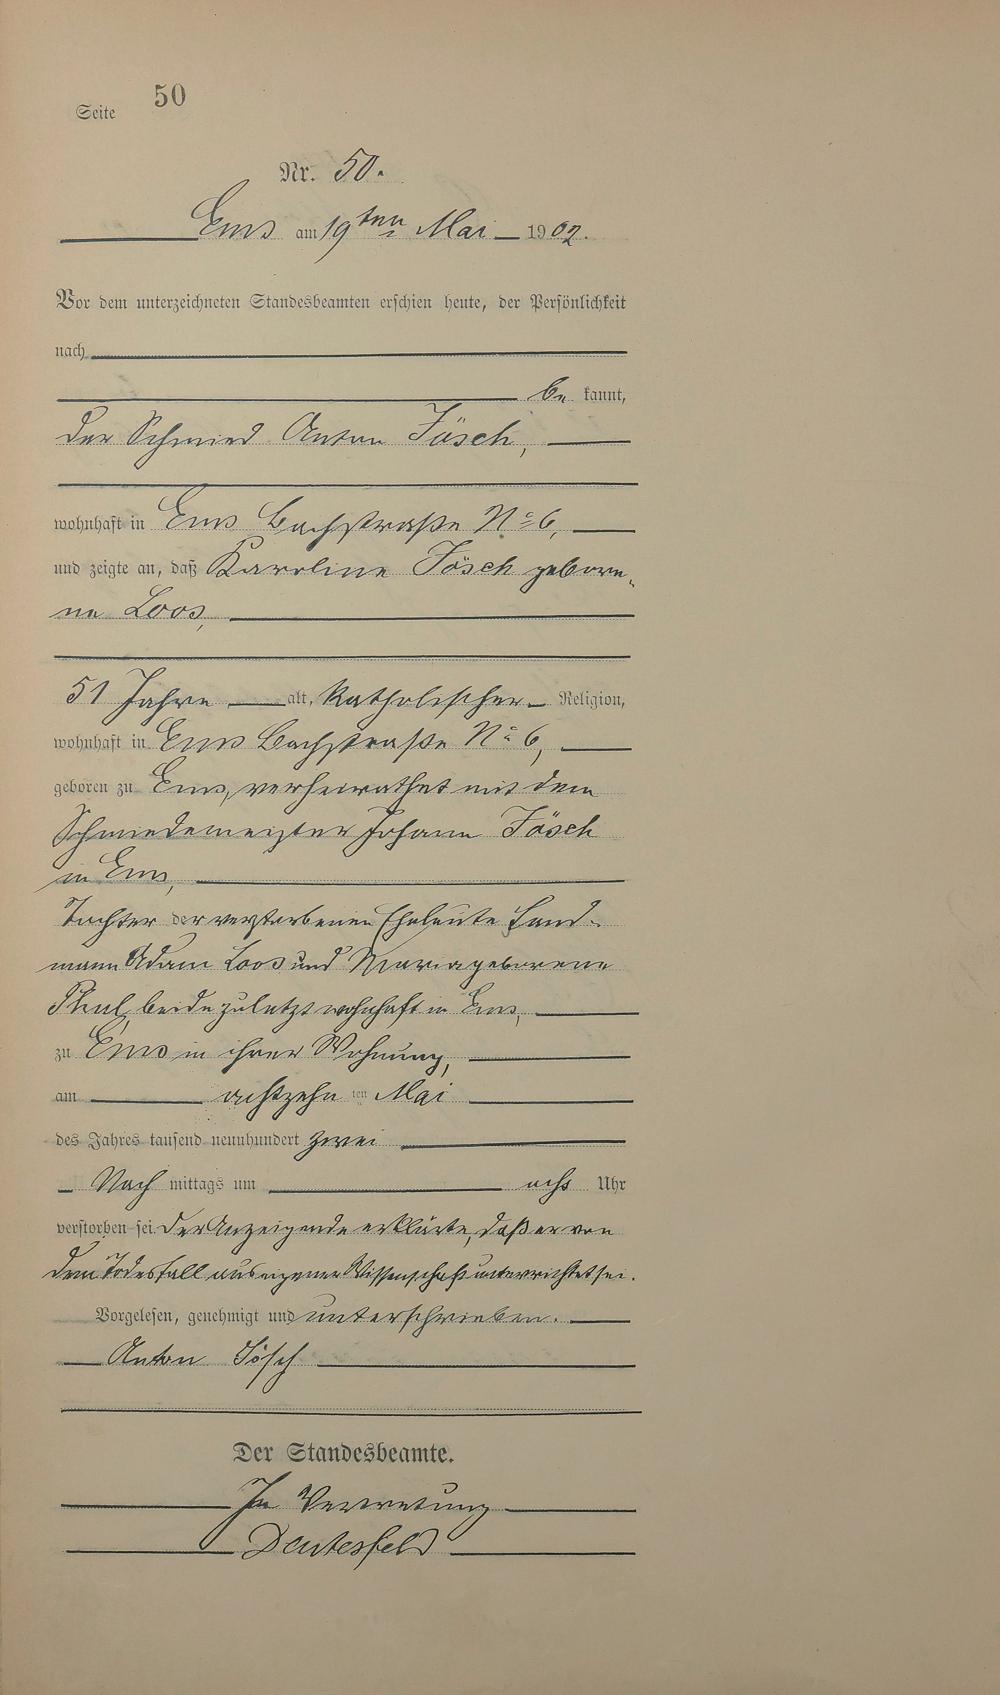 Seite 50
Nr. 50.
Ems am 19ten Mai 1902.
Vor dem unterzeichneten Standesbeamten erschien heute, der Persönlichkeit
nach
be kannt,
der Schmied Anton Jösch,
wohnhaft in Ems Bachstraße No 6,
und zeigte an, daß Karoline Jösch gebore„
ne Loos,
51 Jahre alt, katholischer Religion,
wohnhaft in Ems Bachstraße No 6,
geboren zu Ems, verheirathet mit dem
Schmiedemeister Johann Jösch
in Ems,
Tochter der verstorbenen Eheleute Land-
mann Adam Loos und Maria geborene
beide zuletzt wohnhaft in Ems,
zu Ems in ihrer Wohnung,
am achtzehn ten Mai
des Jahres tausend neunhundert zwei
Nach mittags um acht Uhr
verstorben sei. Der Anzeigende erklärte, daß er von
dem Todesfall aus eigener Wissenschaft unterrichtet sei.
Vorgelesen, genehmigt und unterschrieben.
Anton Jösch
Der Standesbeamte.
In Vertretung
Deutesfeld